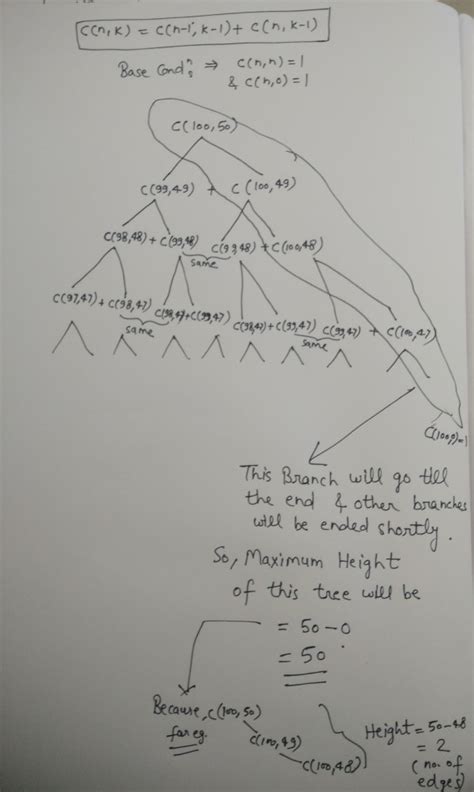 C(n,k) = C(n-1, k-1) + C(n, k-1)
Base Condⁿ: ⇒ C(n,n) = 1
& C(n,0) = 1
C(100,50)
C(99,49) + C(100,49)
C(98,48) + C(99,48) C(99,48) + C(100,48)
same
C(97,47) + C(98,47) C(98,47) + C(99,47) C(98,47) + C(99,47) C(99,47) + C(100,47)
same same
C(100,0)=1
This Branch will go till
the end & other branches
will be ended shortly.
So, Maximum Height
of this tree will be
= 50-0
= 50
Because, C(100,50)
for eg.
C(100,49)
C(100,48)
Height = 50-48
= 2
(no. of
edges)